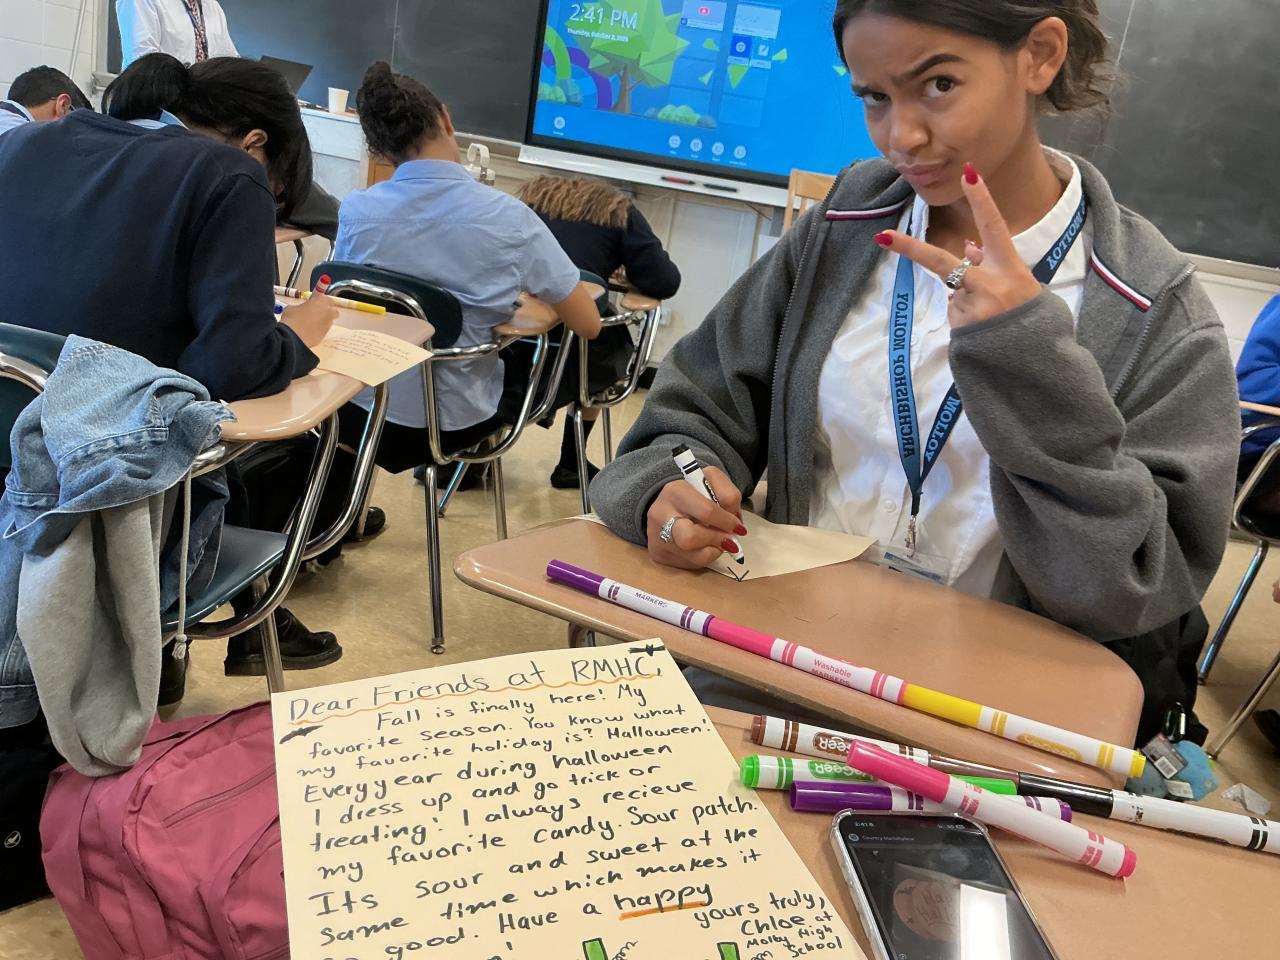 2:41 PM
Thursday, October 2, 2025
ARCHBISHOP MOLLOY
MOLLOY
MOLLOY
MARKERS
Washable
MARKERS
2:41
Country Marketplace
Dear Friends at RMHC,
Fall is finally here! My
favorite season. You know what
my favorite holiday is? Halloween!
Every year during halloween
I dress up and go trick or
treating! I always recieve
my favorite candy. Sour patch.
Its sour and sweet at the
same time which makes it
so good. Have a happy
yours truly,
Chloe at
Molby High
School